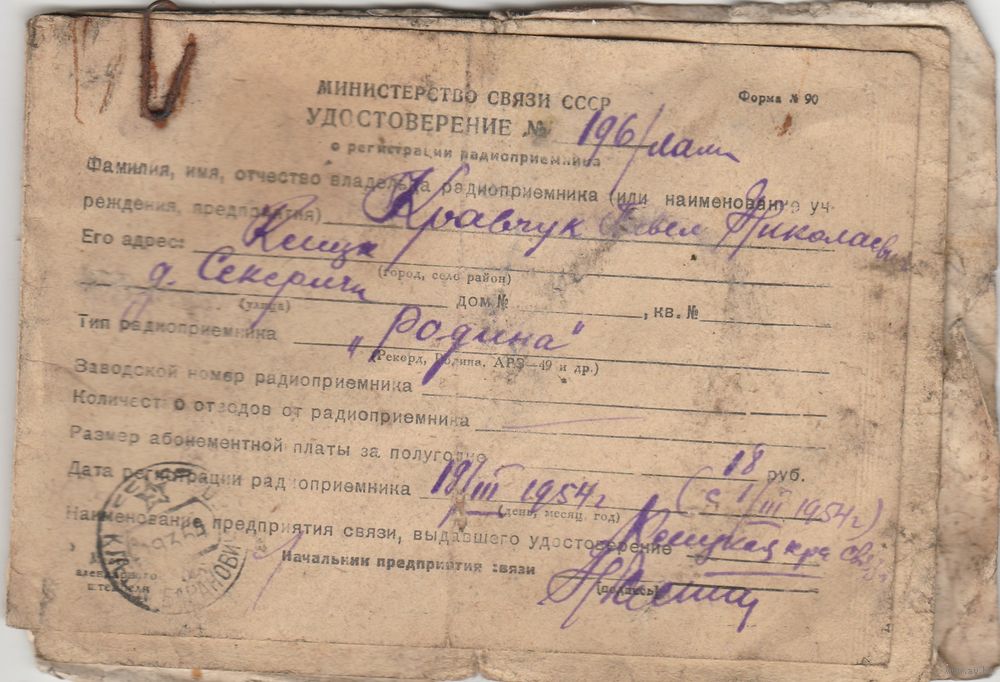 МИНИСТЕРСТВО СВЯЗИ СССР
Форма № 90
УДОСТОВЕРЕНИЕ № 196/
о регистрации радиоприемника
Фамилия, имя, отчество владельца радиоприемника (или наименование уч-
реждения, предприятия) Кравчук Павел Николаевич
Его адрес:
(город, село район)
д. Секеричи дом № , кв. №
(улица)
Тип радиоприемника „Родина"
(Рекорд, Родина, АРЗ—49 и др.)
Заводской номер радиоприемника
Количество отводов от радиоприемника
Размер абонементной платы за полугодие 18 руб.
Дата регистрации радиоприемника 19/III 1954 г (с 1/III 1954 г)
(день, месяц, год)
Наименование предприятия связи, выдавшего удостоверение
Начальник предприятия связи
(подпись)
календарного
штемпеля